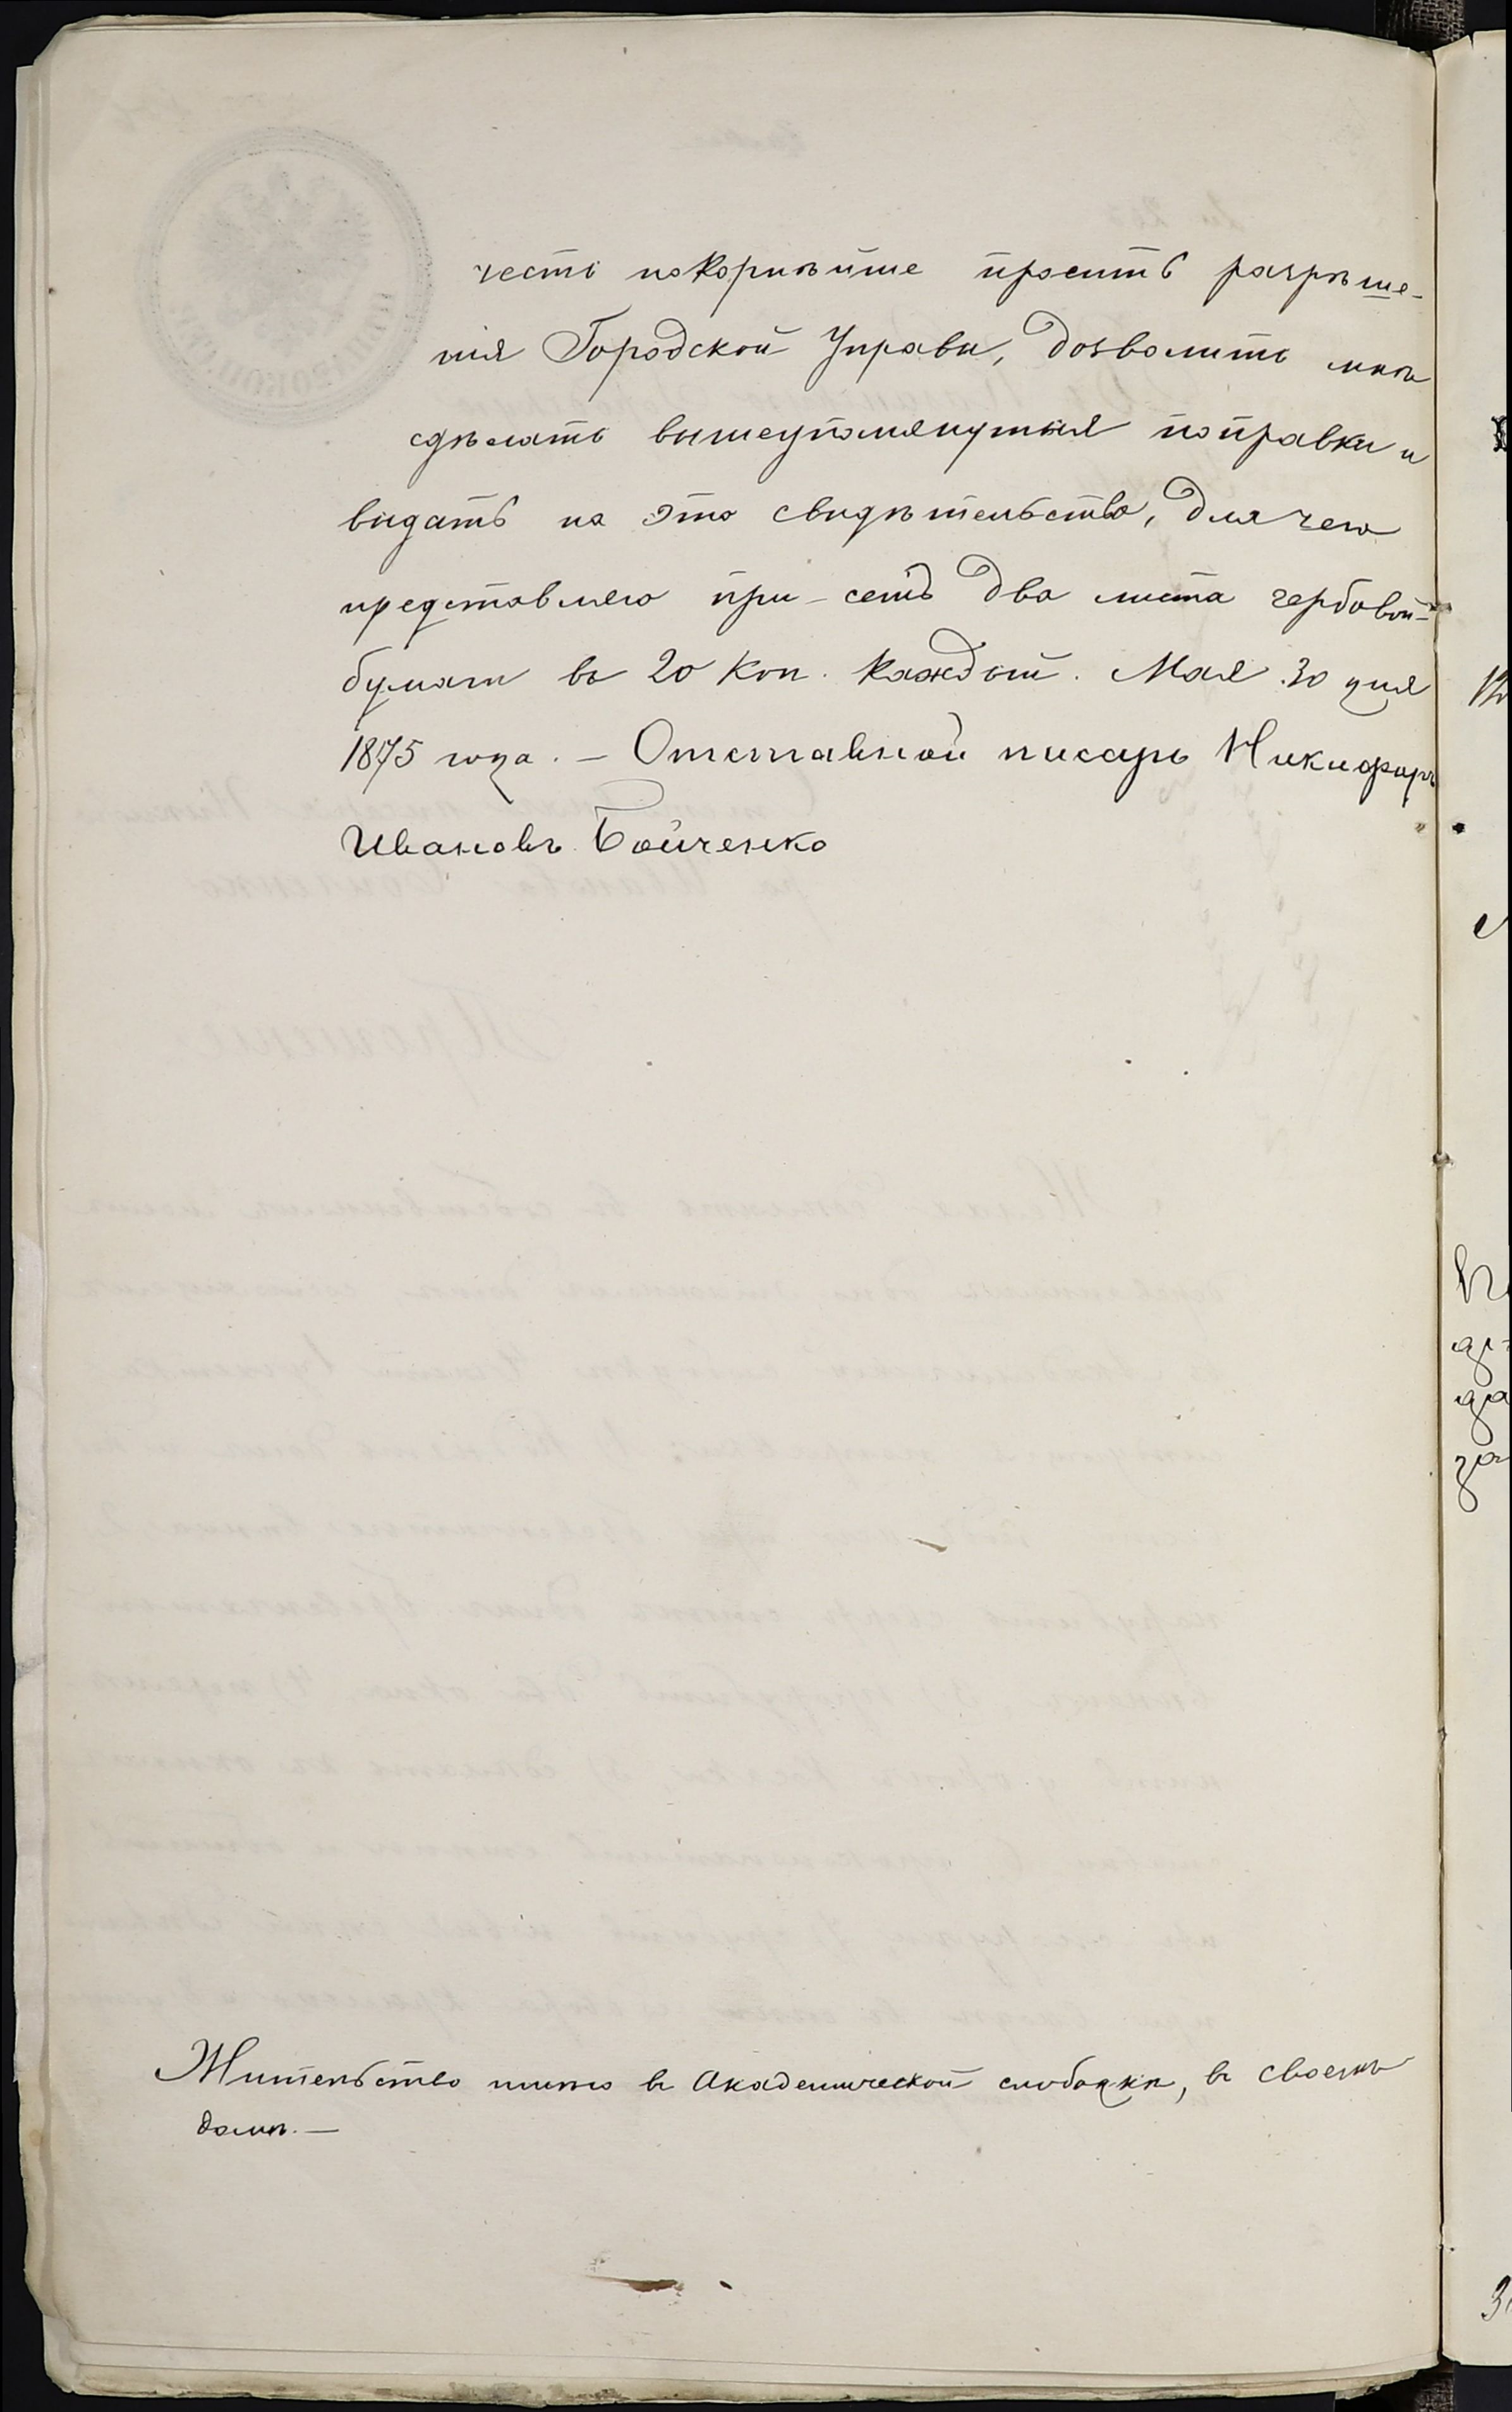 честь покорнѣйше просить разрѣше-
нія Городской Управы, дозволить мнѣ
сдѣлать вышеупомянутыя поправки и
выдать на это свидѣтельство, для чего
представляю при-семъ два листа гербовой
бумаги въ 20 коп. каждый. Мая 30 дня
1875 года. — Отставной писарь Никифоръ
Ивановъ Бойченко
Жительство имѣю въ Академической слободкѣ, въ своемъ
домѣ. —